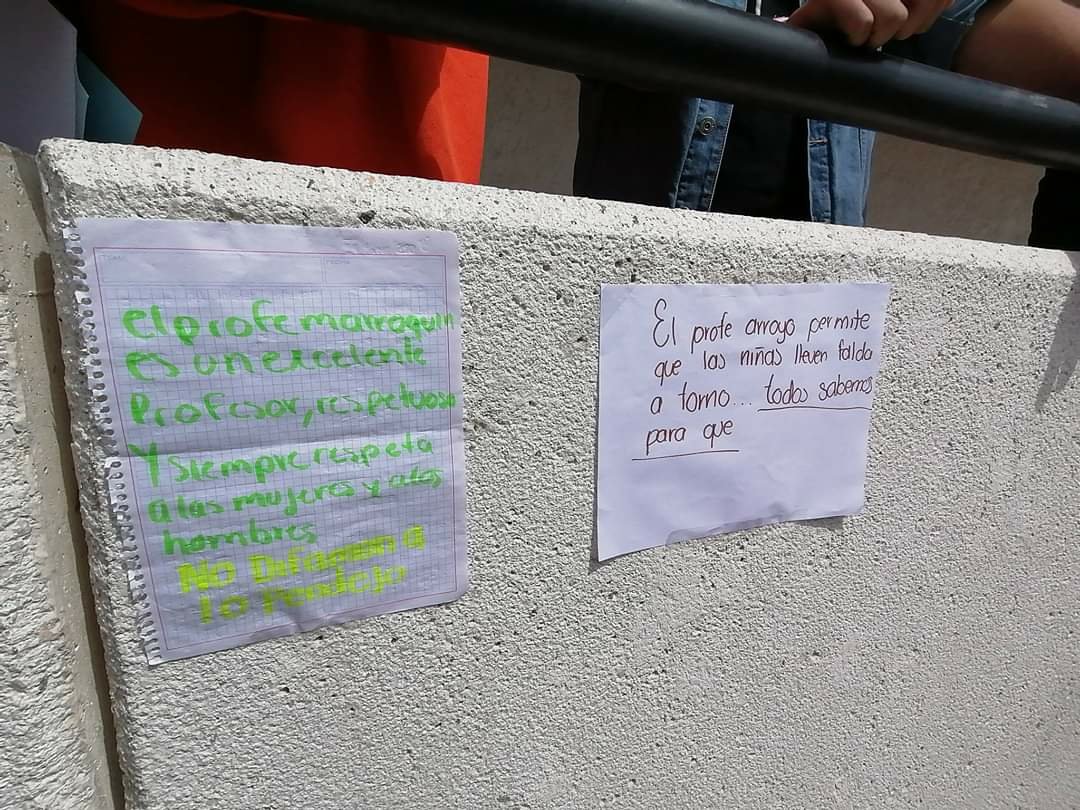 el profe marroquin
es un excelente
Profesor, respetuoso
Y siempre respeta
a las mujeres y a los
hombres
No Difamen a
lo Pendejo
El profe arroyo permite
que las niñas lleven falda
a torno... todos sabemos
para que